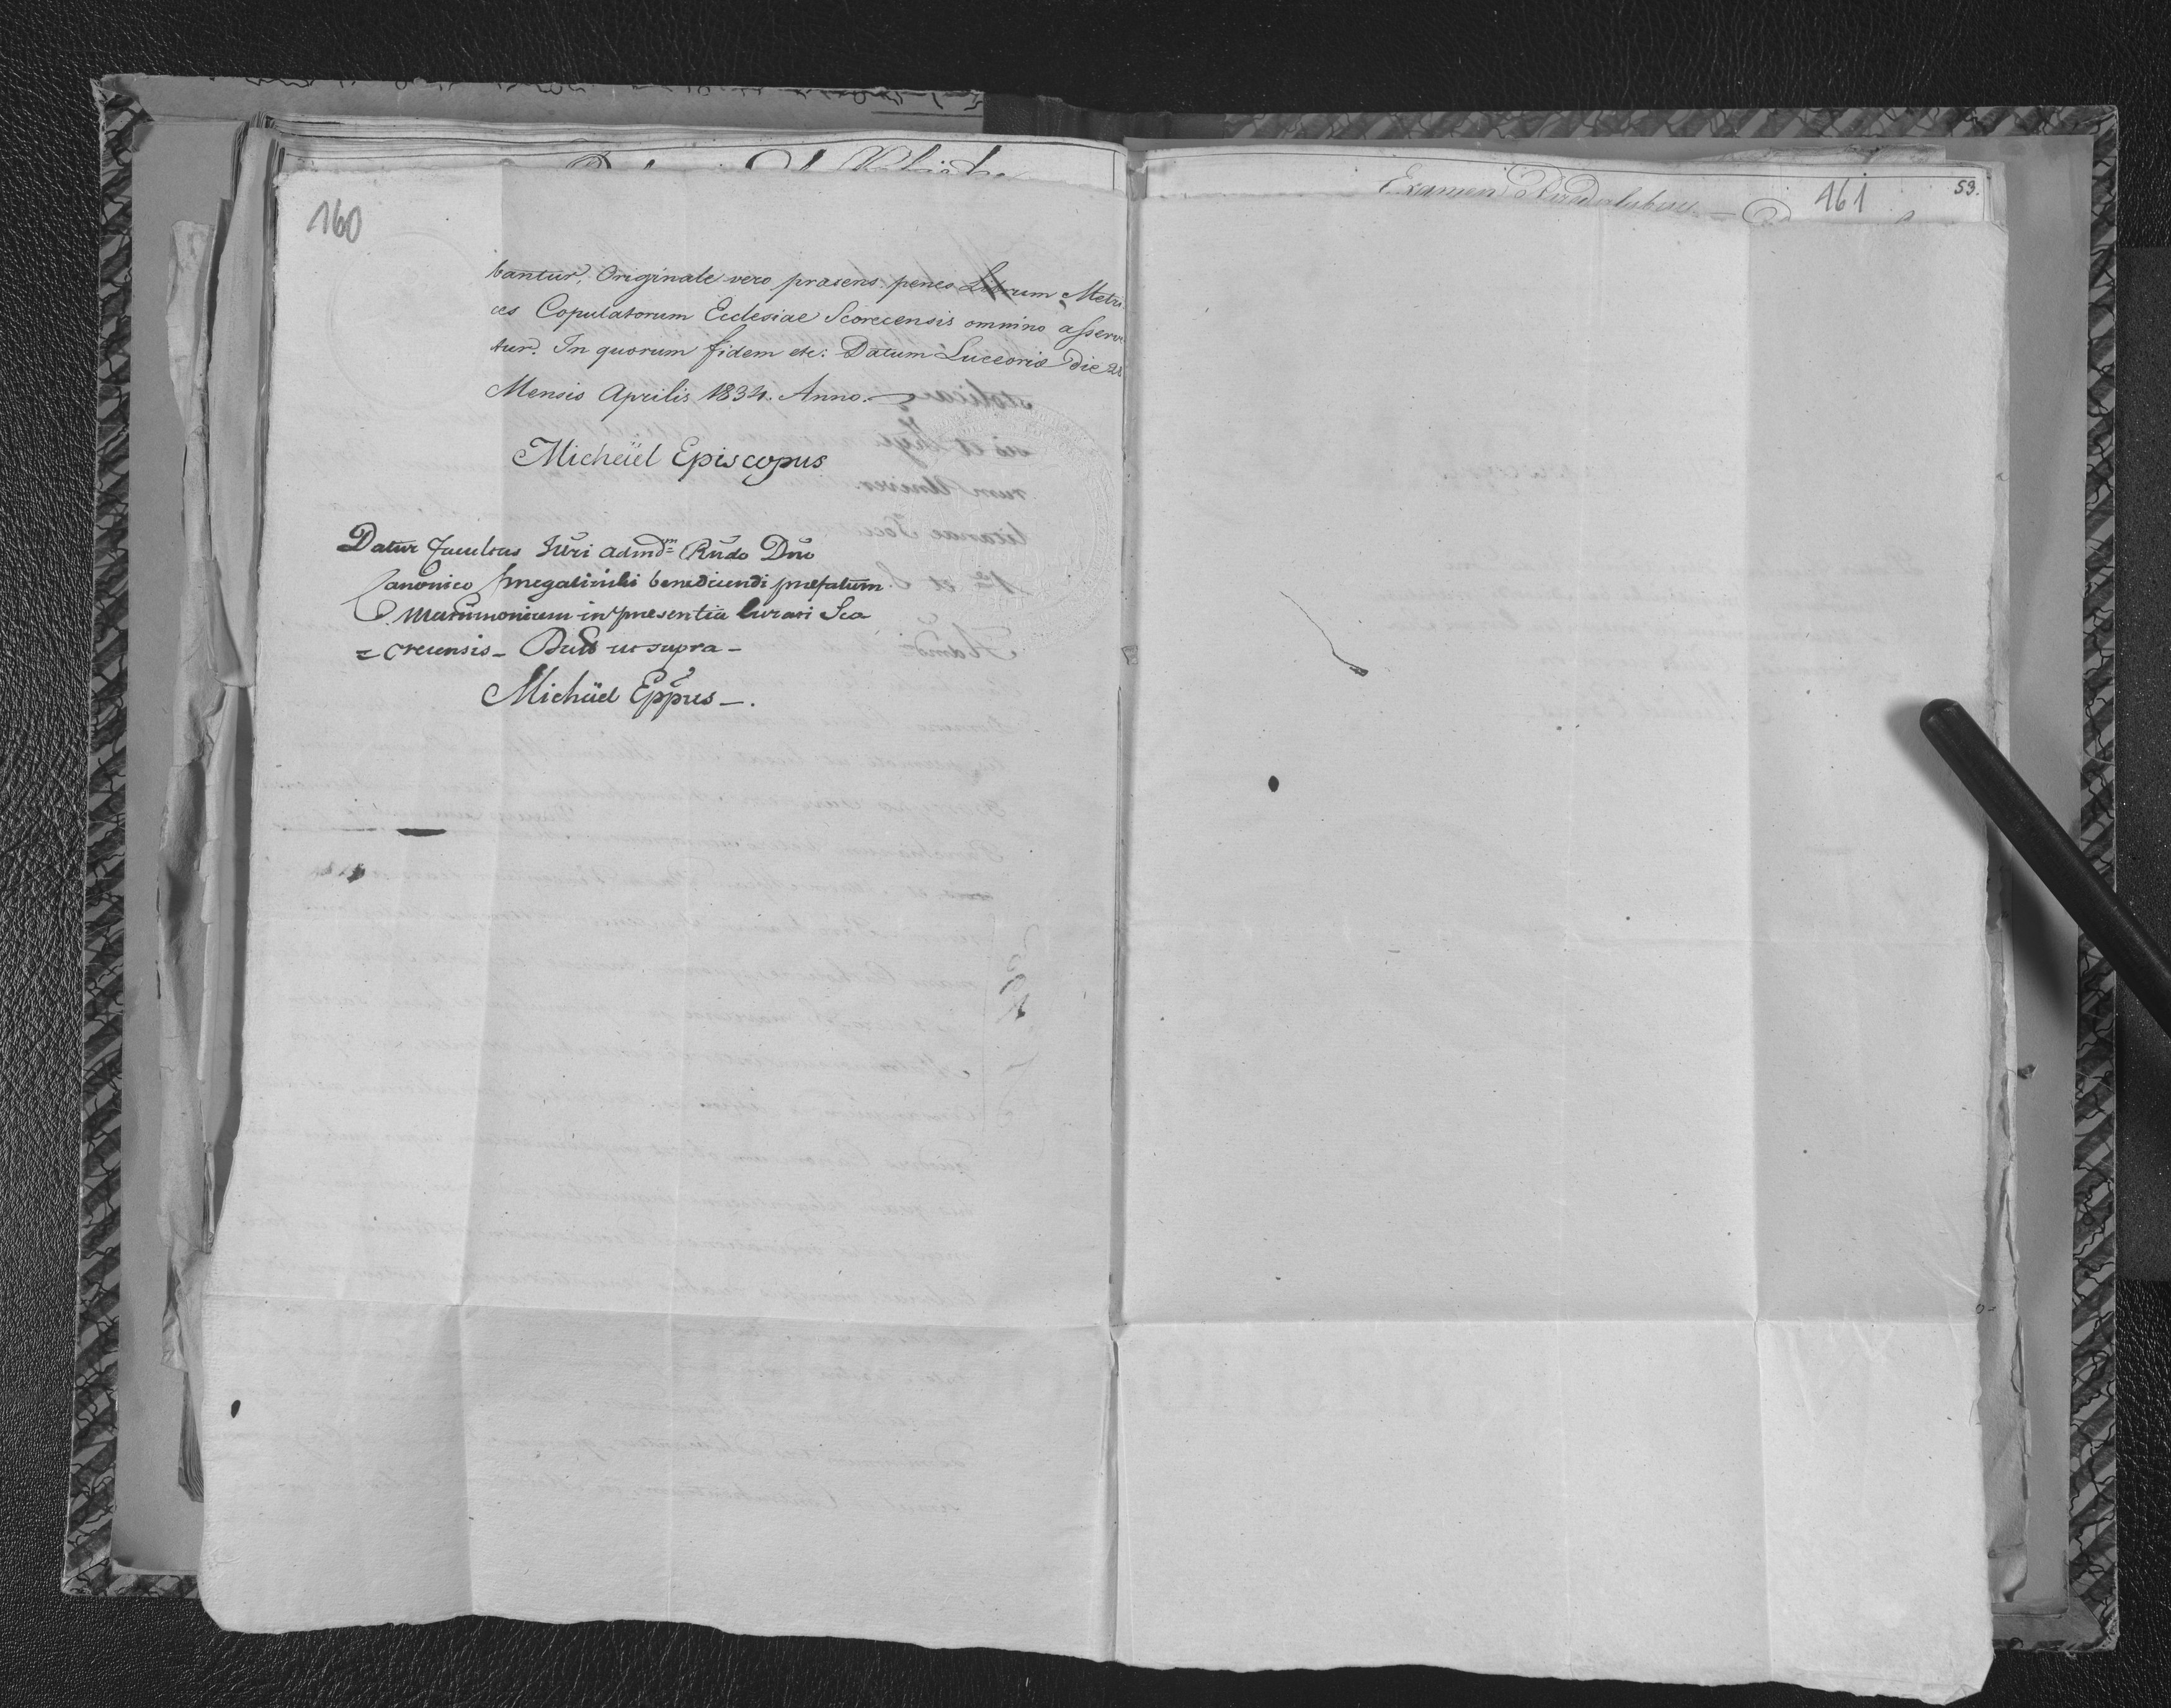 160
bantur, Originale vero praesens penes Librum Metri
ces Copulatorum Ecclesiae Scorecensis omnino asserve
tur. In quorum fidem etc: Datum Luceoriæ Die 28
Mensis Aprilis 1834. Anno.
Michäel Episcopus
Datur facultas Iuri admdm Rndo Dno
Canonico benedicendi præfatum
Matrimonium in presentia Curati Sco
= recensis - ut supra -
Michäel Eppus -.
Examen
161
53.